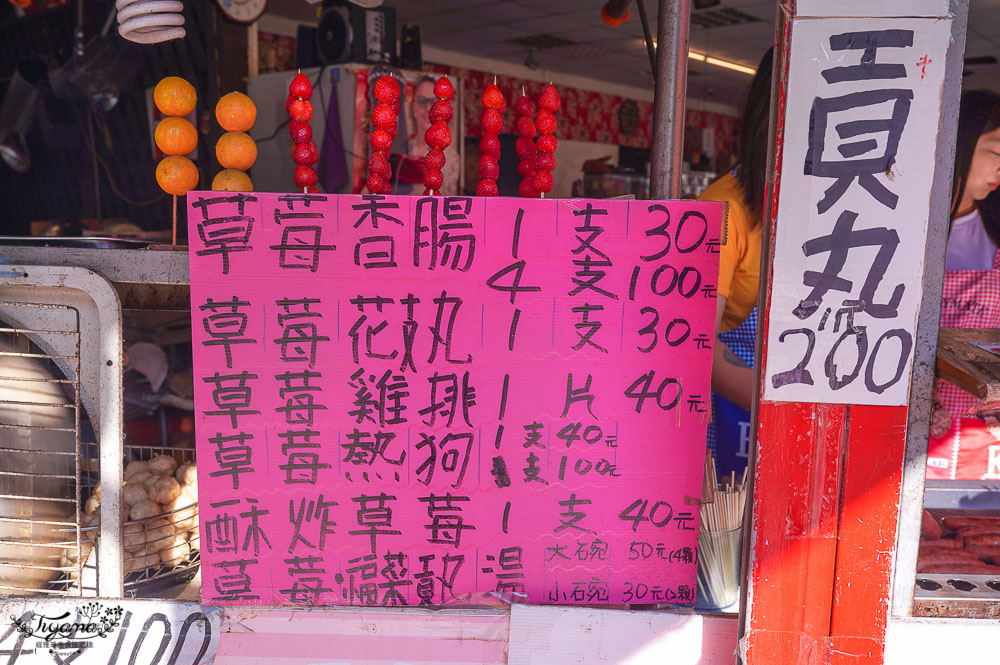 草莓香腸 1支 30元
4支 100元
草莓花枝丸 1支 30元
草莓雞排 1片 40元
草莓熱狗 1支 40元
支 100元
酥炸草莓 1支 40元
草莓福菜湯 大碗 50元(4顆)
小碗 30元(2顆)
貢丸
1斤
200
100
Tiyama